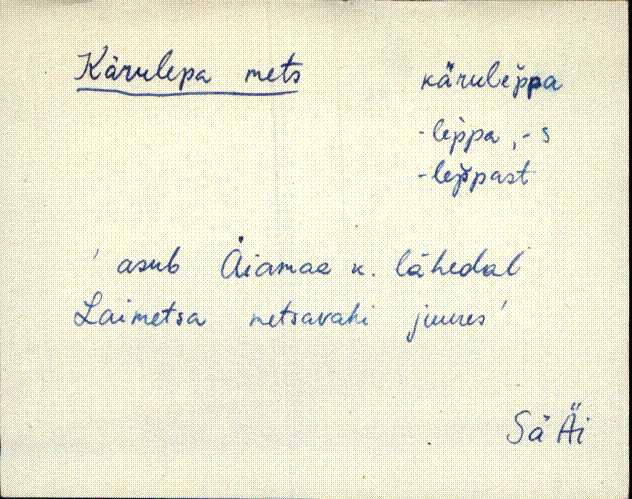 Kärulepa mets
käruleppa
-leppa, -s
-leppast
' asub Äiamaa k. lähedal
Laimetsa metsavahi juures '
Sä Äi